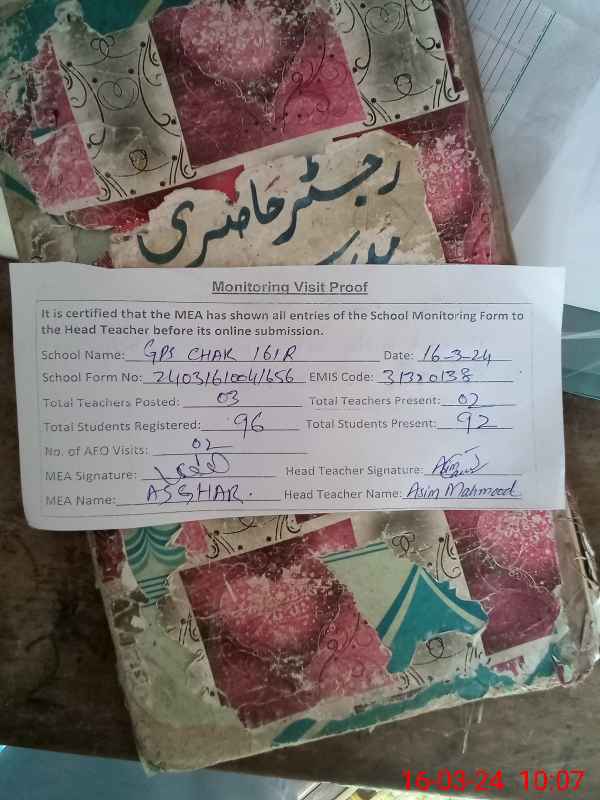 رجسٹر حاضری
Monitoring Visit Proof
It is certified that the MEA has shown all entries of the School Monitoring Form to
the Head Teacher before its online submission.
School Name: GPS CHAK 161R Date: 16-3-24
School Form No: 2403161004/656 EMIS Code: 31320138
Total Teachers Posted: 03 Total Teachers Present: 02
Total Students Registered: 96 Total Students Present: 92
No. of AEO Visits: 02
MEA Signature: Head Teacher Signature: Asim
MEA Name: ASGHAR. Head Teacher Name: Asim Mahmood
16-03-24 10:07